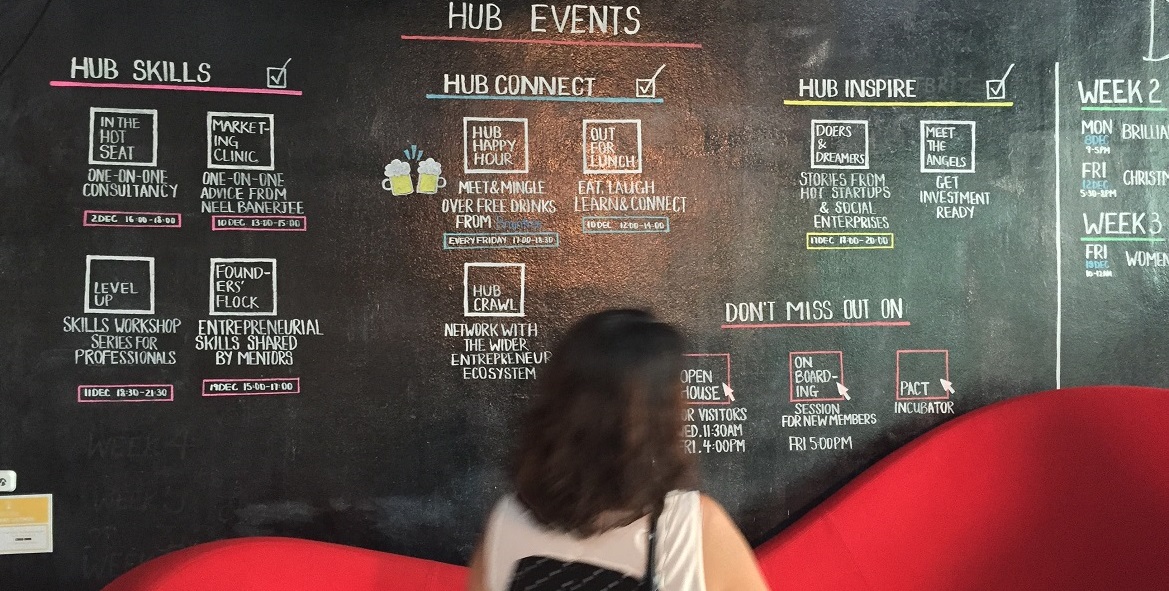 HUB EVENTS
HUB SKILLS
IN THE
HOT
SEAT
ONE-ON-ONE
CONSULTANCY
2 DEC 16:00-18:00
MARKET-
ING
CLINIC
ONE-ON-ONE
ADVICE FROM
NEEL BANERJEE
10 DEC 13:00-15:00
LEVEL
UP
SKILLS WORKSHOP
SERIES FOR
PROFESSIONALS
11 DEC 18:30-21:30
FOUND-
ERS'
FLOCK
ENTREPRENEURIAL
SKILLS SHARED
BY MENTORS
19 DEC 15:00-17:00
HUB CONNECT
HUB
HAPPY
HOUR
MEET & MINGLE
OVER FREE DRINKS
FROM
EVERY FRIDAY 17:00-18:30
OUT
FOR
LUNCH
EAT, LAUGH
LEARN & CONNECT
10 DEC 12:00-14:00
HUB
CRAWL
NETWORK WITH
THE WIDER
ENTREPRENEUR
ECOSYSTEM
HUB INSPIRE
DOERS
& DREAMERS
STORIES FROM
HOT STARTUPS
& SOCIAL
ENTERPRISES
17 DEC 18:00-20:00
MEET
THE
ANGELS
GET
INVESTMENT
READY
DON'T MISS OUT ON
OPEN
HOUSE
OR VISITORS
ED. 11:30AM
RI. 4:00PM
ON
BOARD-
ING
SESSION
FOR NEW MEMBERS
FRI 5:00PM
PACT
INCUBATOR
WEEK 2
MON BRILLIA
8 DEC
9-5PM
FRI CHRISTM
12 DEC
WEEK 3
FRI WOMEN
10-12AM
WEEK 4